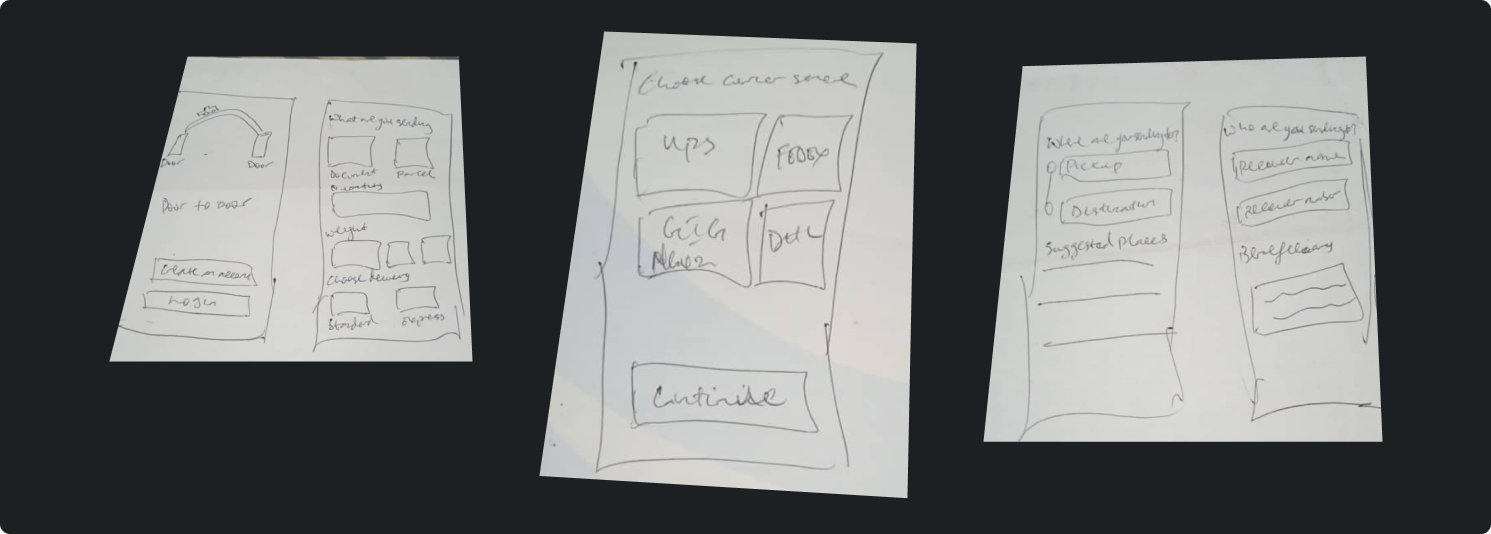 Door
Door
Door to Door
Create an account
Login
What are you sending
Document
Parcel
Quantity
Weight
Choose delivery
Standard
Express
Choose carrier service
UPS
FEDEX
GIG
DHL
Continue
Where are you sending to?
Pickup
Destination
Suggested places
Who are you sending to?
Receiver name
Receiver number
Beneficiary